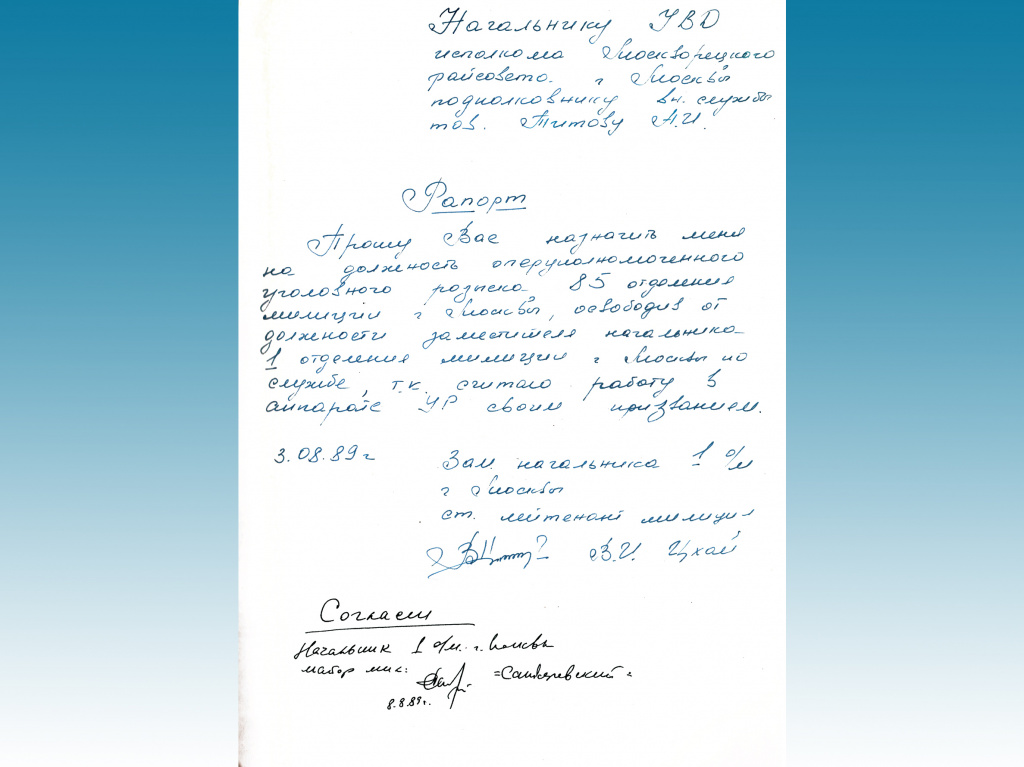 Начальнику УВД
исполкома Москворецкого
райсовета г Москвы
подполковнику вн. службы
тов. Титову А.И.
Рапорт
Прошу Вас назначить меня
на должность оперуполномоченного
уголовного розыска 85 отделения
милиции г Москвы, освободив от
должности заместителя начальника
1 отделения милиции г Москвы по
службе, т.к. считаю работу в
аппарате УР своим призванием.
3.08.89 г
Зам. начальника 1 о/м
г Москвы
ст. лейтенант милиции
В.И. Цхай
Согласен
Начальник 1 о/м. г. Москвы
майор мил:
8.8.89г.